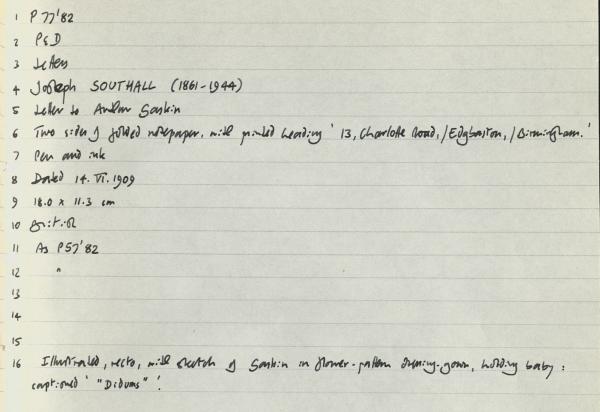 1 P 77'82
2 P&D
3 Letters
4 Joseph SOUTHALL (1861-1944)
5 Letter to Arthur Gaskin
6 Two sides of folded notepaper, with printed heading '13, Charlotte Road,/Edgbaston,/Birmingham.'
7 Pen and ink
8 Dated 14.VI.1909
9 18.0 x 11.3 cm
10 British
11 As P57'82
12 "
13
14
15
16 Illustrated, recto, with sketch of Gaskin in flower-pattern dressing-gown, holding baby:
captioned '"Didums"'.